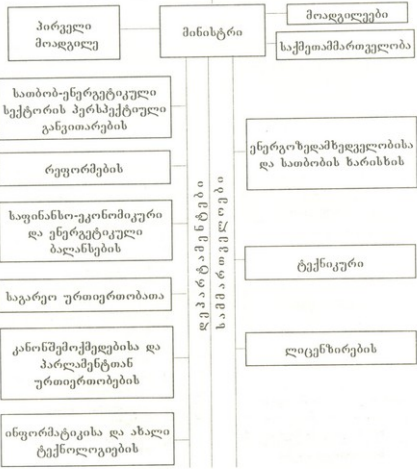 პირველი
მოადგილე
მინისტრი
მოადგილეები
საქმეთამმართველობა
სათბობ-ენერგეტიკული
სექტორის პერსპექტიული
განვითარების
რეფორმების
საფინანსო-ეკონომიკური
და ენერგეტიკული
ბალანსების
საგარეო ურთიერთობათა
კანონშემოქმედებისა და
პარლამენტთან
ურთიერთობების
ინფორმატიკისა და ახალი
ტექნოლოგიების
დეპარტამენტები
სამმართველოები
ენერგოზედამხედველობისა
და სათბობის ხარისხის
ტექნიკური
ლიცენზირების